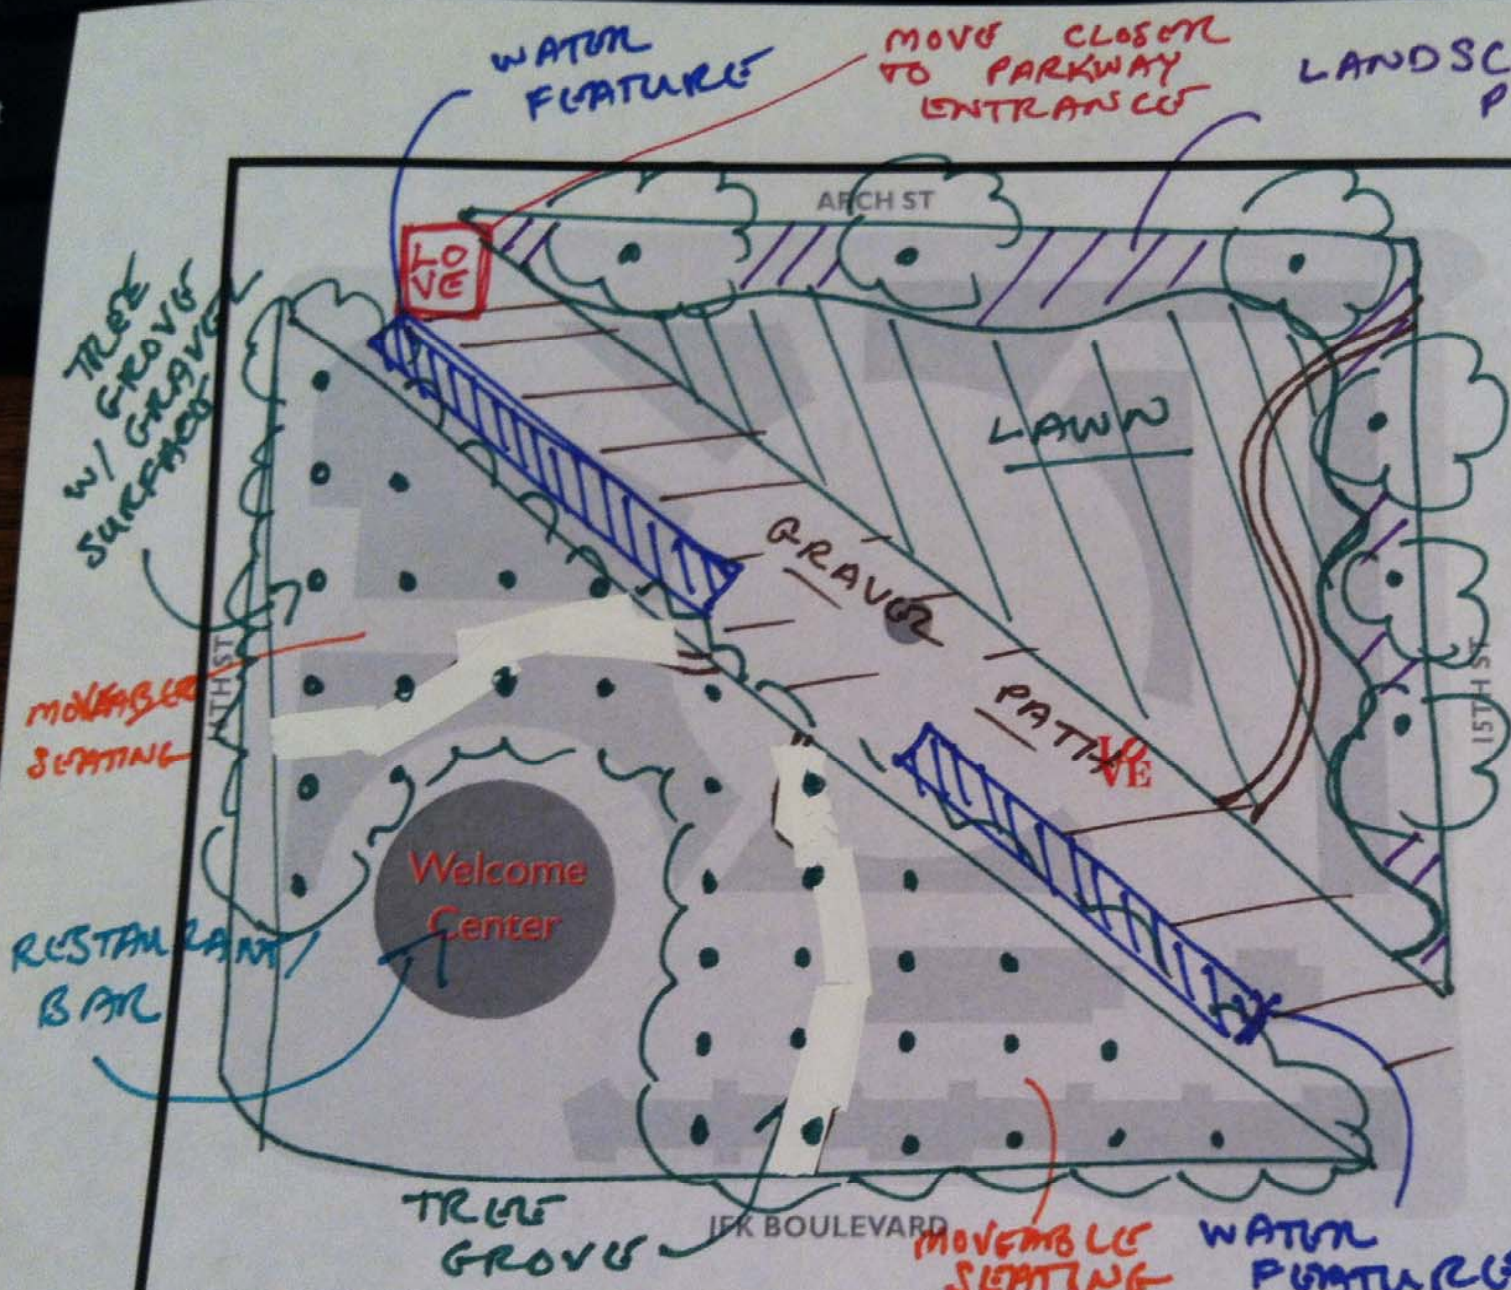 WATER
FEATURE
MOVE CLOSER
TO PARKWAY
ENTRANCE
LANDSC
P
ARCH ST
LO
VE
TREE
GROVE
W/ GRAVEL
SURFACE
LAWN
GRAVEL
PATH
LO
VE
TH ST
15TH ST
MOVEABLE
SEATING
Welcome
Center
RESTAURANT/
BAR
TREE
GROVE
JFK BOULEVARD
MOVEABLE
SEATING
WATER
FEATURE